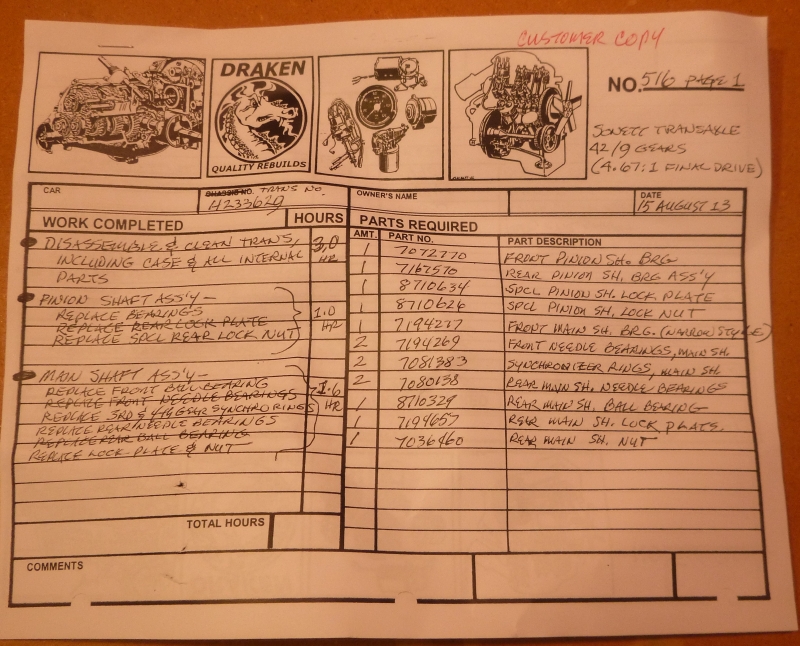 CUSTOMER COPY
DRAKEN
QUALITY REBUILDS
NO. 516 PAGE 1
SONETT TRANSAXLE
42/9 GEARS
(4.67:1 FINAL DRIVE)
CAR
CHASSIS NO. TRANS NO.
H233629
OWNER'S NAME
DATE
15 AUGUST 13
WORK COMPLETED
HOURS
PARTS REQUIRED
AMT. PART NO. PART DESCRIPTION
DISASSEMBLE & CLEAN TRANS, 3.0
INCLUDING CASE & ALL INTERNAL HR
PARTS
PINION SHAFT ASS'Y —
REPLACE BEARINGS 1.0
REPLACE REAR LOCK PLATE HR
REPLACE SPCL REAR LOCK NUT
MAIN SHAFT ASS'Y —
REPLACE FRONT BALL BEARING
REPLACE FRONT NEEDLE BEARINGS
REPLACE 3RD & 4TH GEAR SYNCHRO RINGS HR
REPLACE REAR NEEDLE BEARINGS
REPLACE REAR BALL BEARING
REPLACE LOCK PLATE & NUT
1 7072770 FRONT PINION SH. BRG
1 REAR PINION SH. BRG ASS'Y
1 8710634 SPCL PINION SH. LOCK PLATE
1 8710626 SPCL PINION SH. LOCK NUT
1 7194277 FRONT MAIN SH. BRG. (NARROW STYLE)
2 7194269 FRONT NEEDLE BEARINGS, MAIN SH.
2 7081383 SYNCHRONIZER RINGS, MAIN SH.
2 7080138 REAR MAIN SH. NEEDLE BEARINGS
1 8710329 REAR MAIN SH. BALL BEARING
1 7194657 REAR MAIN SH. LOCK PLATE.
1 7036460 REAR MAIN SH. NUT
TOTAL HOURS
COMMENTS